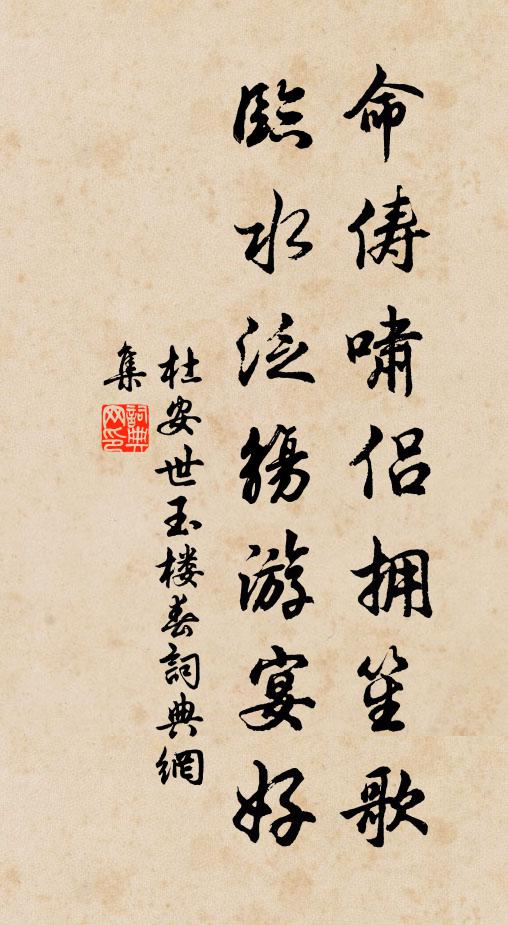 命俦啸侣拥笙歌
临水泛觞游宴好
杜安世玉楼春詞典網
集
詞典网印